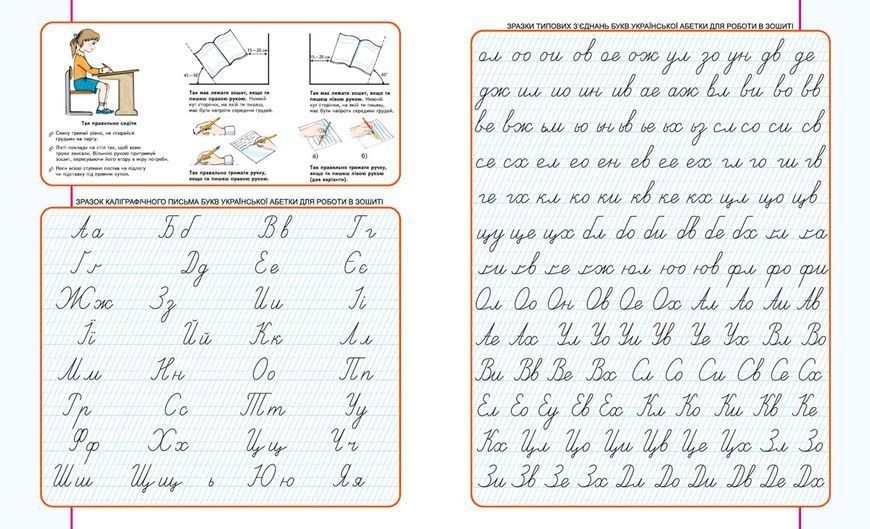 15—20 см
45—50°
15—20 см
60°
Так має лежати зошит, якщо ти
пишеш правою рукою. Нижній
кут сторінки, на якій ти пишеш,
має бути напроти середини грудей.
Так має лежати зошит, якщо ти
пишеш лівою рукою. Нижній
кут сторінки, на якій ти пишеш,
має бути напроти середини грудей.
Так правильно сидіти
Спину тримай рівно, не спирайся
грудьми на парту.
Лікті поклади на стіл так, щоб вони
трохи звисали. Вільною рукою притримуй
зошит, пересуваючи його вгору в міру потреби.
Ноги всією ступнею постав на підлогу
чи підставку під прямим кутом.
Так правильно тримати ручку,
якщо ти пишеш правою рукою.
а) б)
Так правильно тримати ручку,
якщо ти пишеш лівою рукою
(два варіанти).
ЗРАЗОК КАЛІГРАФІЧНОГО ПИСЬМА БУКВ УКРАЇНСЬКОЇ АБЕТКИ ДЛЯ РОБОТИ В ЗОШИТІ
Аа Бб Вв Гг
Ґґ Дд Ее Єє
Жж Зз Ии Іі
Її Йй Кк Лл
Мм Нн Оо Пп
Рр Сс Тт Уу
Фф Хх Цц Чч
Шш Щщ ь Юю Яя
ЗРАЗКИ ТИПОВИХ З'ЄДНАНЬ БУКВ УКРАЇНСЬКОЇ АБЕТКИ ДЛЯ РОБОТИ В ЗОШИТІ
ол оо ои ов ое ож ул зо ун дв де
дж ил ио ин ив ае аж вл ви во вв
ве вж ьм ьо ьн ьв ье ьх ьз сл со си св
се сх ел ео ен ев ее ех гл го ги гв
ге гх кл ко ки кв ке кх цл цо цв
цу це цх бл бо би бв бе бх ґл ґа
ґи ґв ґе ґж юл юо юв фл фо фи
Ол Оо Он Ов Ое Ох Ал Ао Аи Ав
Ае Ах Ул Уо Уи Ув Уе Ух Вл Во
Ви Вв Ве Вх Сл Со Си Св Се Сх
Ел Ео Еу Ев Ех Кл Ко Ки Кв Ке
Кх Цл Цо Ци Цв Це Цх Зл Зо
Зи Зв Зе Зх Дл До Ди Дв Де Дх